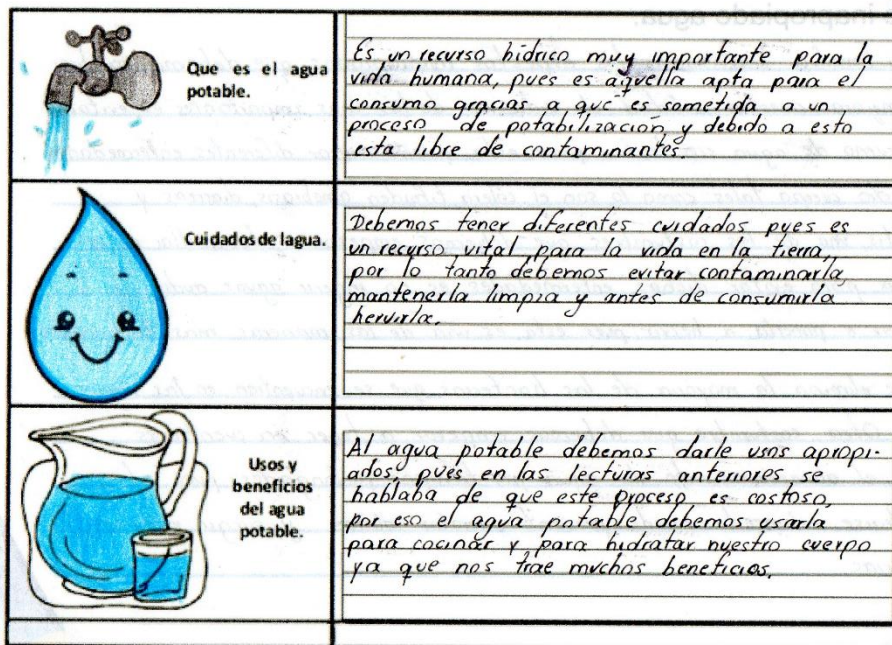 inapropiado agua.
Que es el agua
potable.
Es un recurso hídrico muy importante para la
vida humana, pues es aquella apta para el
consumo gracias a que es sometida a un
proceso de potabilización, y debido a esto
esta libre de contaminantes.
Cuidados de lagua.
Debemos tener diferentes cuidados pues es
un recurso vital para la vida en la tierra,
por lo tanto debemos evitar contaminarla,
mantenerla limpia y antes de consumirla
hervirla.
Usos y
beneficios
del agua
potable.
Al agua potable debemos darle usos apropi-
ados, pues en las lecturas anteriores se
hablaba de que este proceso es costoso,
por eso el agua potable debemos usarla
para cocinar y para hidratar nuestro cuerpo
ya que nos trae muchos beneficios.